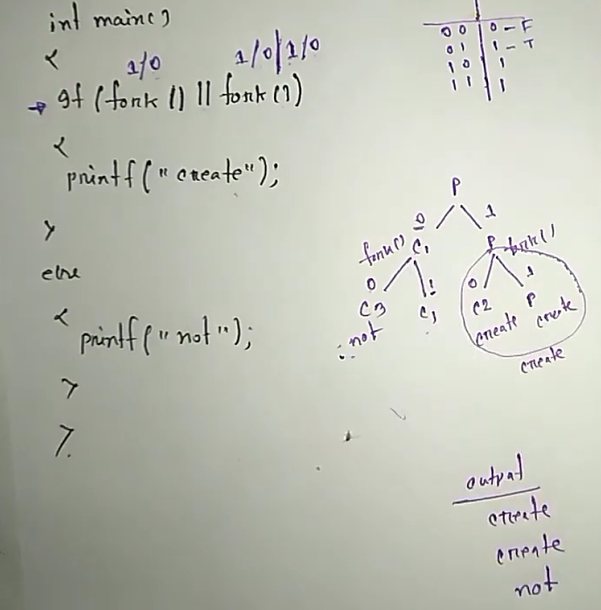 int main()
{
1/0 1/0|1/0
→ If (fork () || fork ()
{
printf("create");
}
else
{
printf("not");
}
}.
0 0 0 - F
0 1 1 - T
1 0 1
1 1 1
P
0 1
fork() C1 P fork()
0 1 0 1
C3 C1 C2 P
not create create
create
output
create
create
not